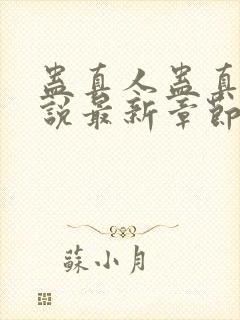 蛊真人蛊真
說最新章節
蘇小月